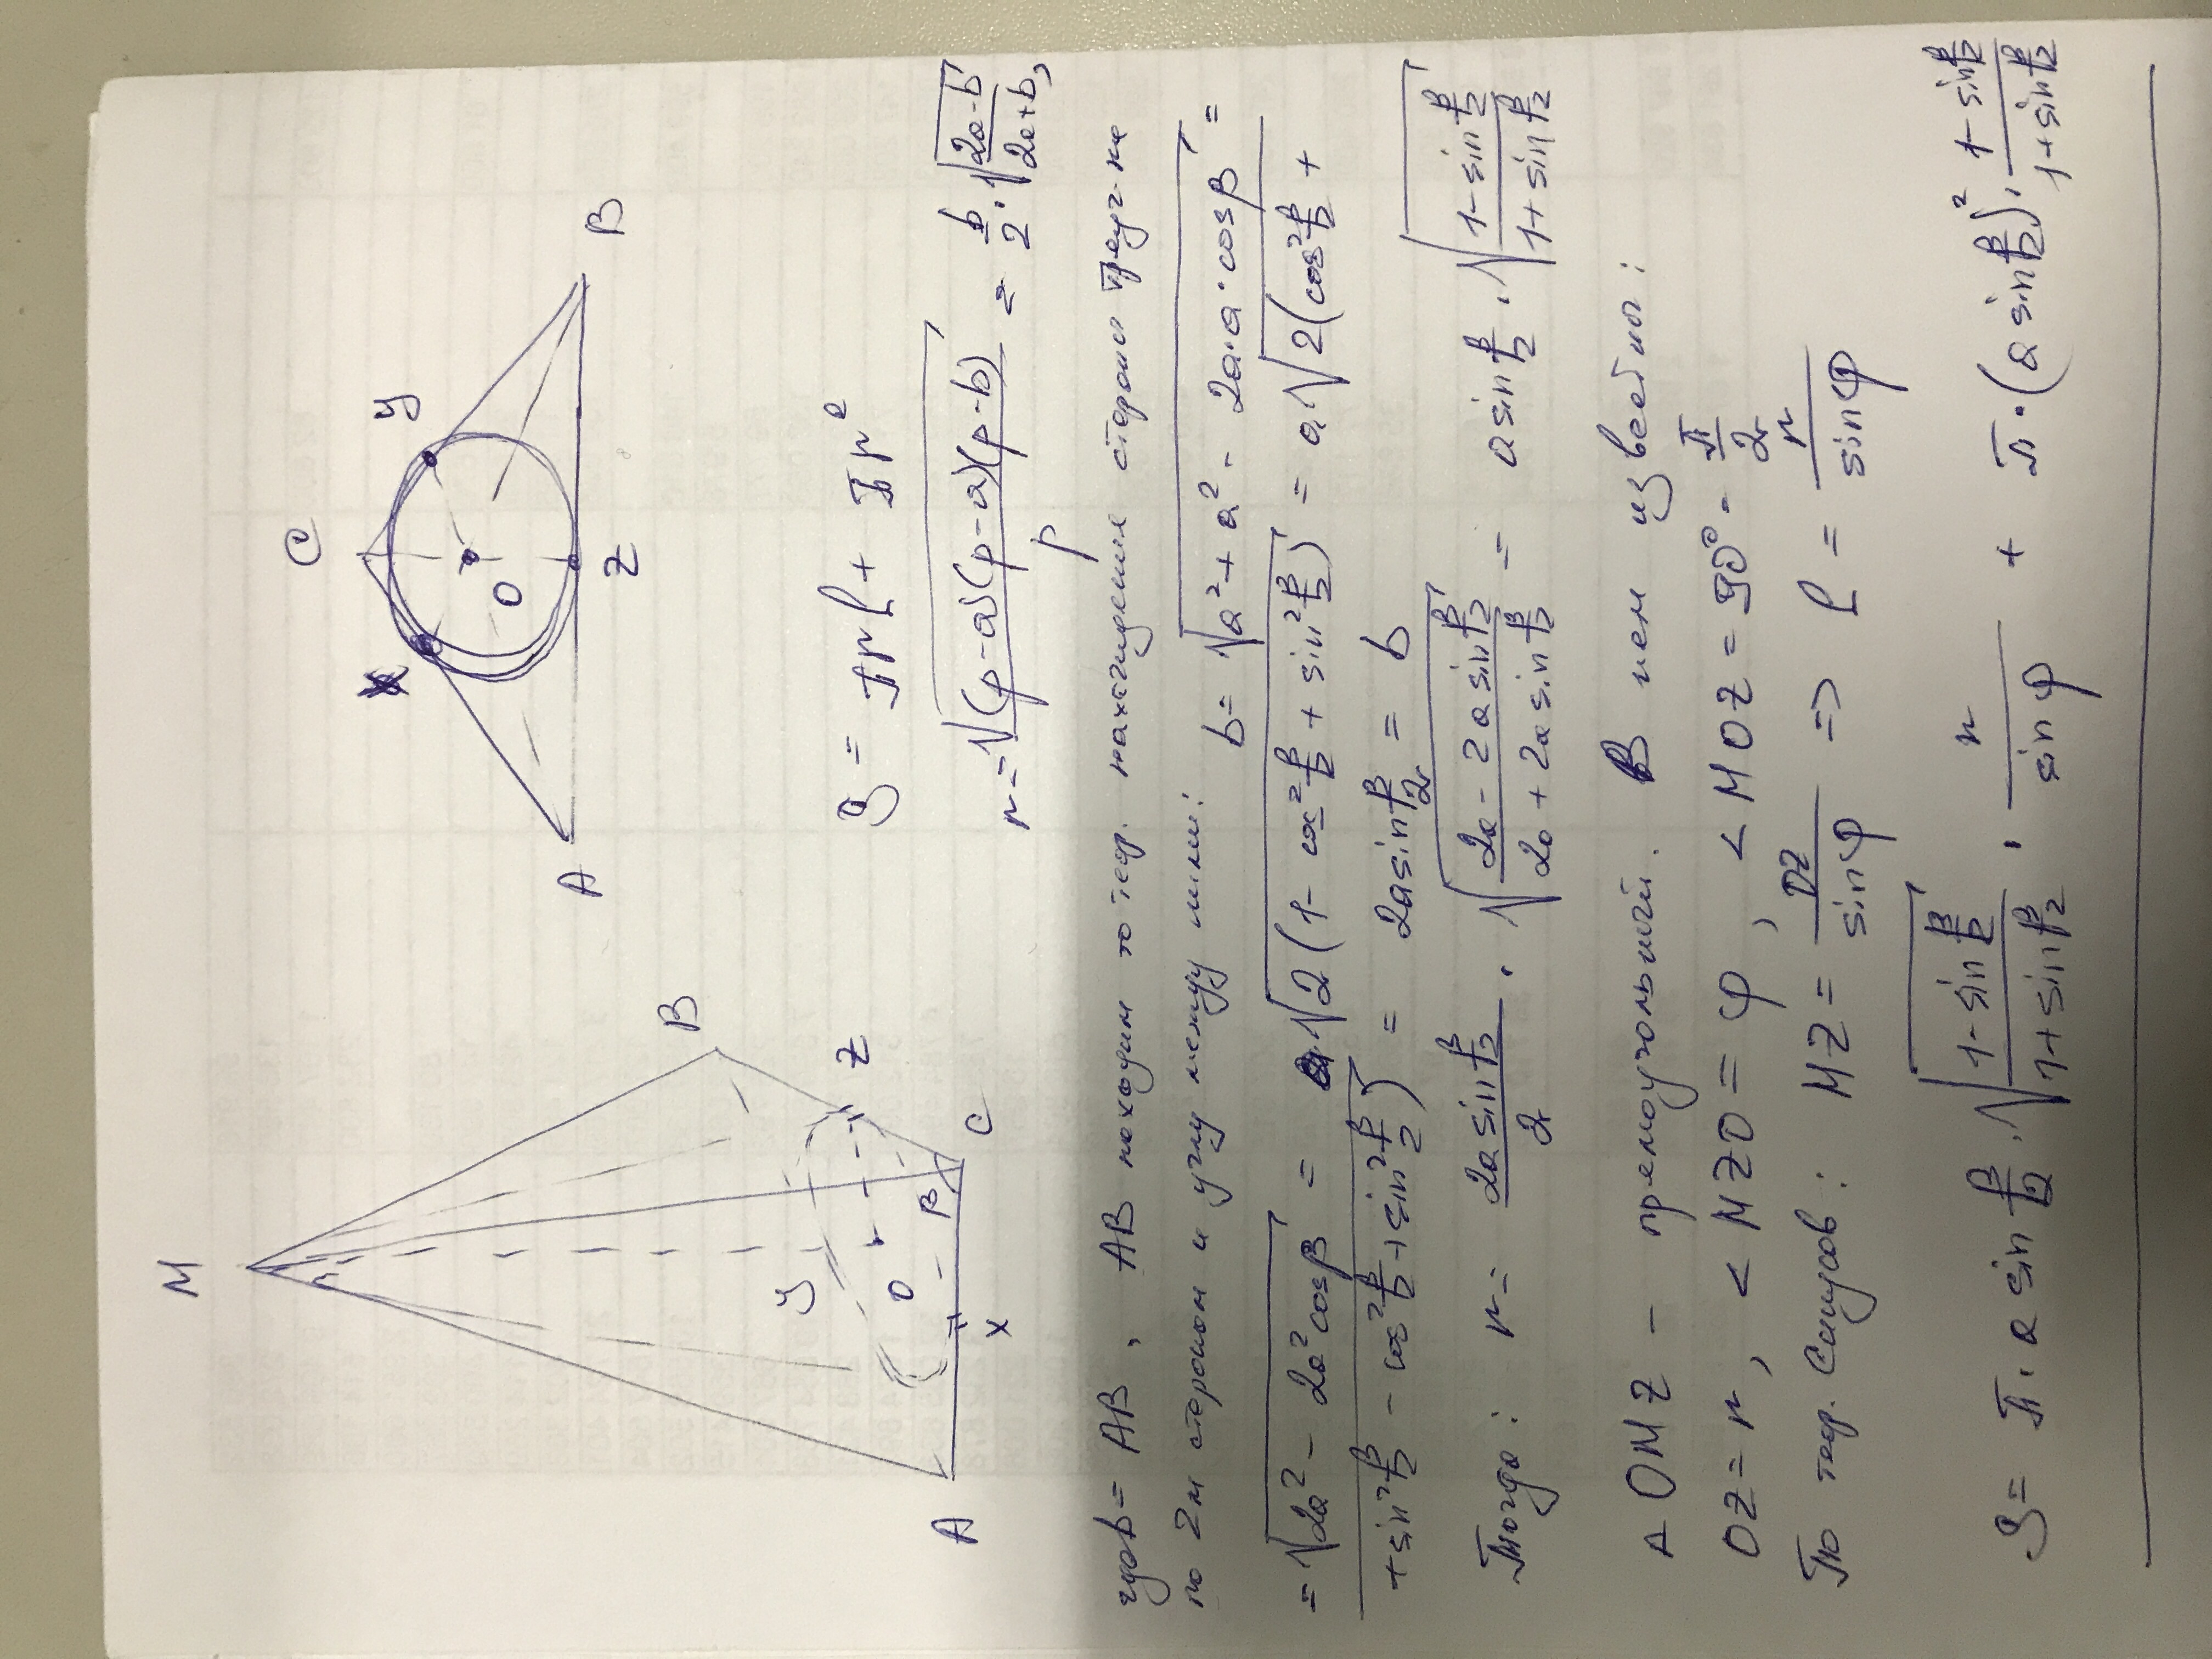 M
A
B
C
X
У
Z
O
β
C
X
У
O
A
Z
B
S = πrl + πr²
r = √((p-a)(p-a)(p-b)/p) = b/2 · √((2a-b)/(2a+b)),
где b = AB, AB находим по теор. нахождения сторон треуг-ка
по 2м сторонам и углу между ними: b = √(a² + a² - 2a·a·cosβ) =
= √(2a² - 2a²cosβ) = a√(2(1 - cos²β/2 + sin²β/2)) = a√(2(cos²β/2 +
+ sin²β/2 - cos²β/2 + sin²β/2)) = 2a sin β/2 = b
Тогда: r = (2a sin β/2)/2 · √((2a - 2a sin β/2)/(2a + 2a sin β/2)) = a sin β/2 · √((1 - sin β/2)/(1 + sin β/2))
△ OMZ - прямоугольный. В нем известны:
OZ = r, < MZO = φ, < MOZ = 90° = π/2
По теор. Синусов: MZ = OZ/sinφ => l = r/sinφ
S = π · a sin β/2 · √((1 - sin β/2)/(1 + sin β/2)) · r/sinφ + π · (a sin β/2)² · (1 - sin β/2)/(1 + sin β/2)